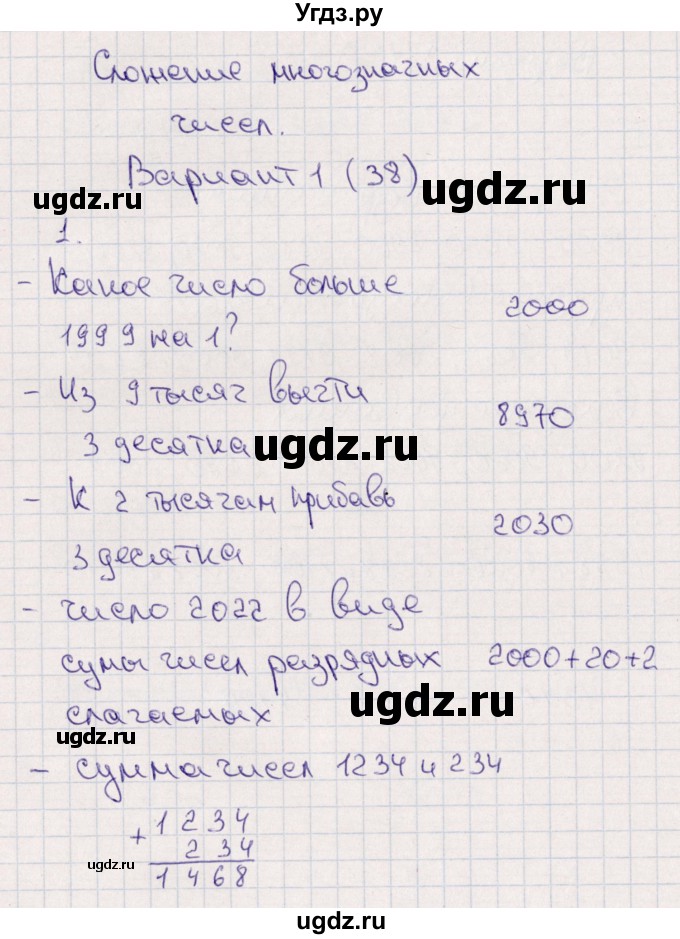 Угдз.ру
Сложение многозначных
чисел.
Вариант 1 (38)
ugdz.ru
ugdz.ru
1.
- Какое число больше
1999 на 1?
2000
- Из 9 тысяч вычти
3 десятка
8970
ugdz.ru
- К 2 тысячам прибавь
3 десятка
2030
- число 2022 в виде
сумы чисел разрядных
2000+20+2
слагаемых
ugdz.ru
ugdz.ru
- сумма чисел 1234 и 234
+ 1 2 3 4
2 3 4
1 4 6 8
ugdz.ru
ugdz.ru